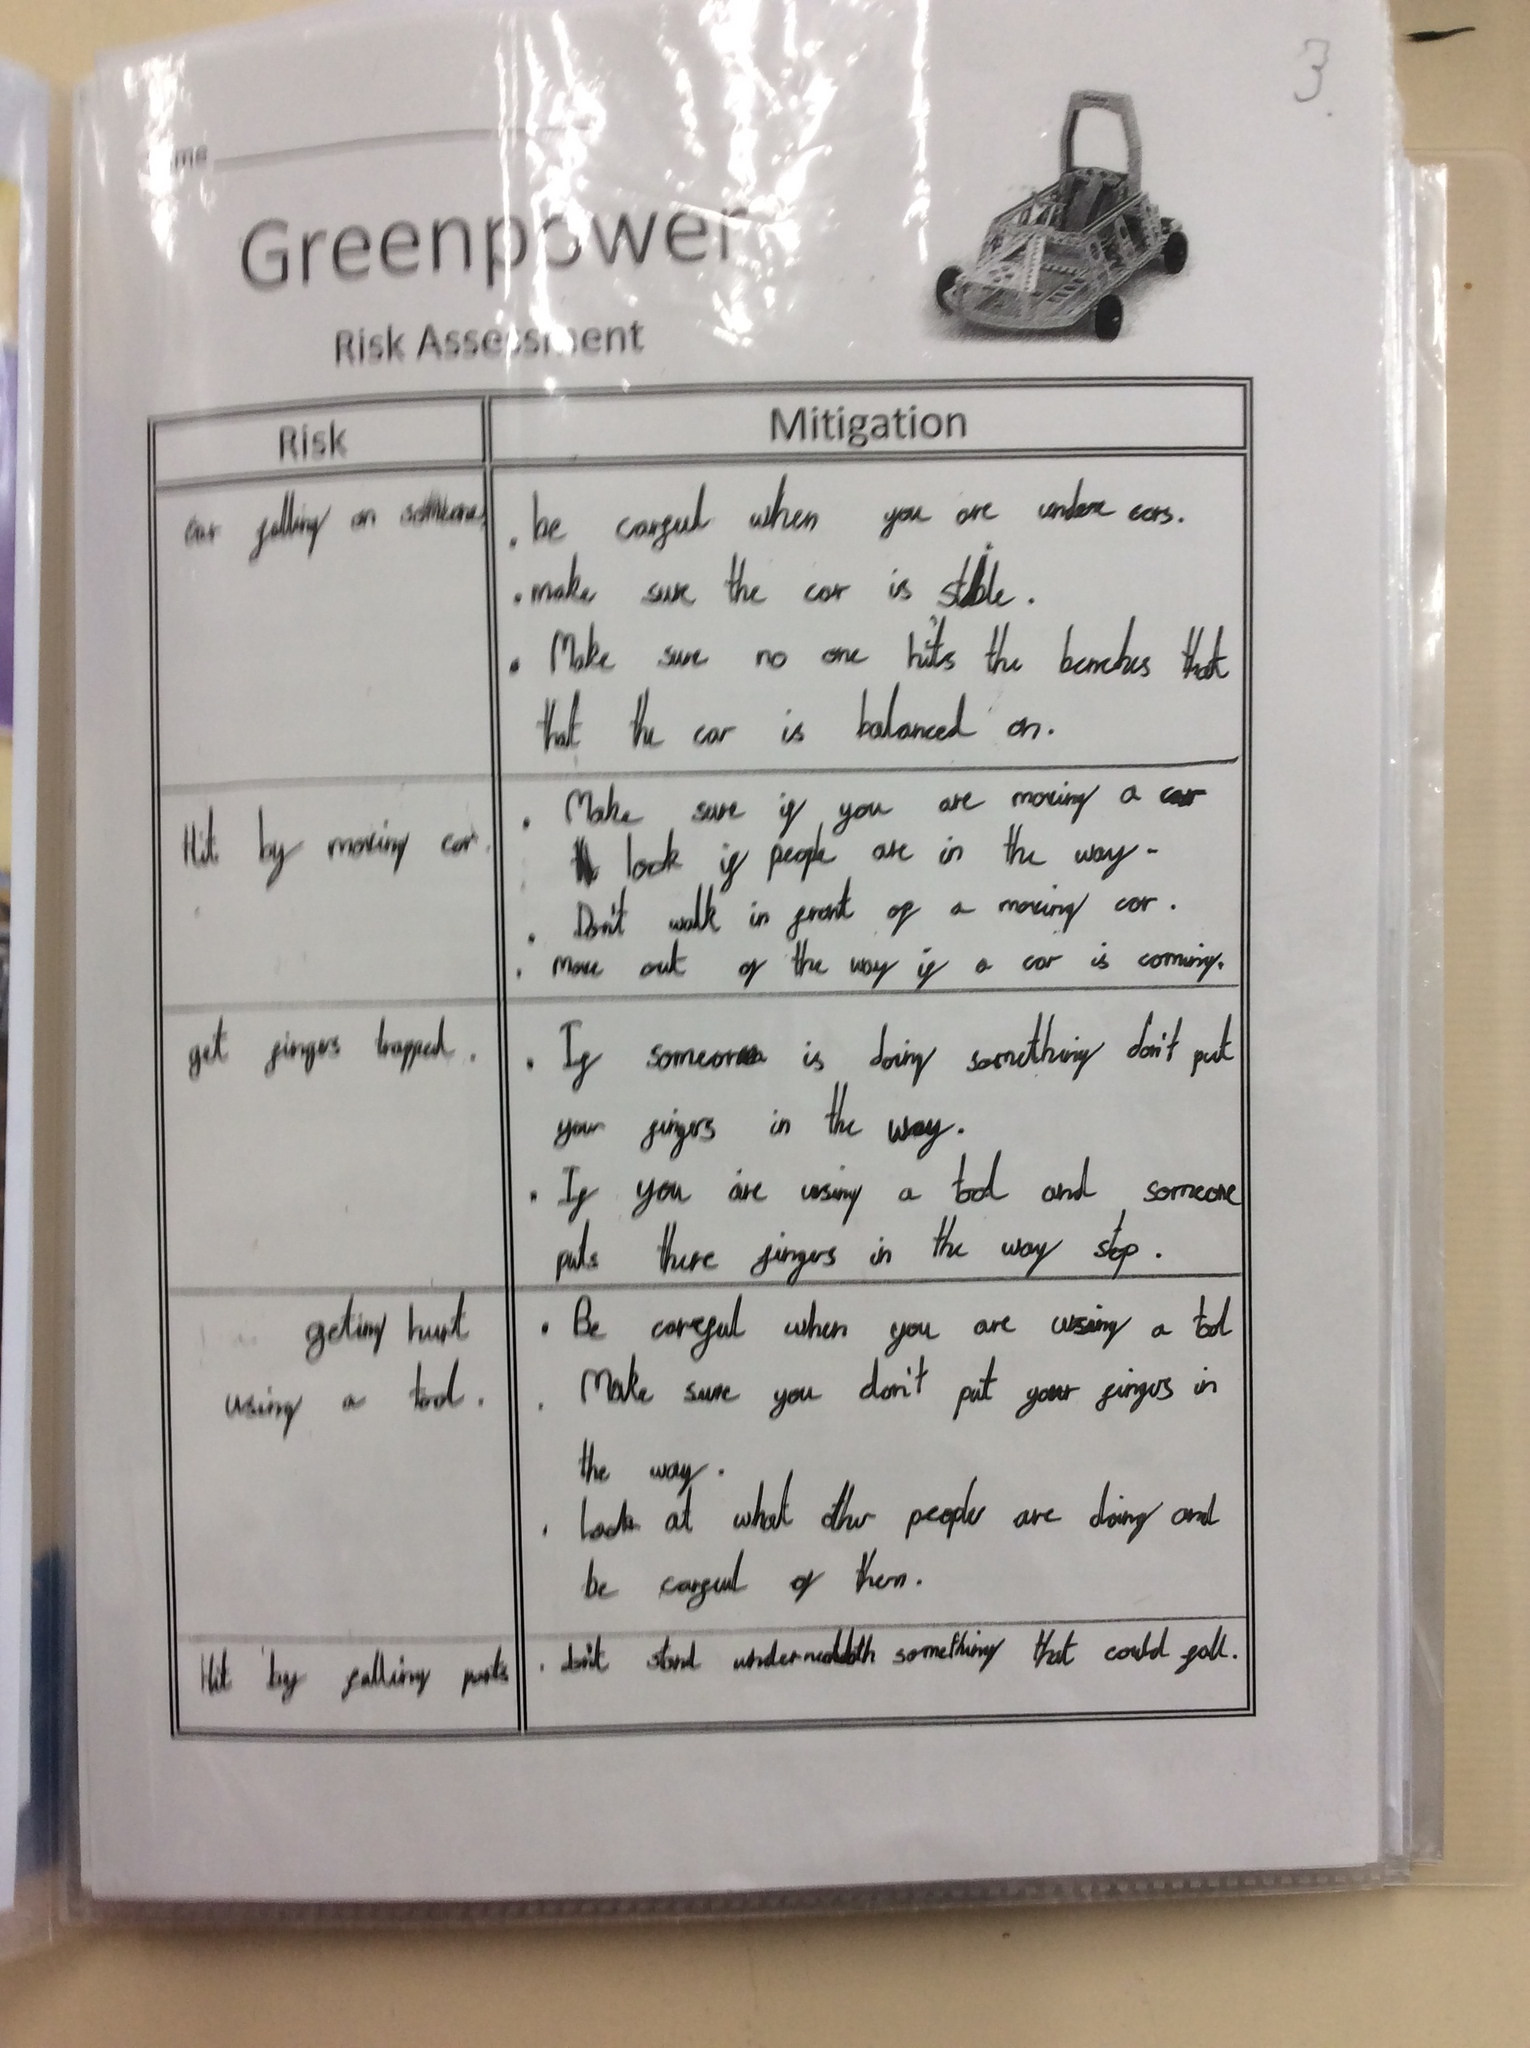 3.
Greenpower
Risk Assessment
Risk
Mitigation
car falling on someone
• be careful when you are under cars.
• make sure the car is stable.
• Make sure no one hits the benches that
that the car is balanced on.
Hit by moving car.
• Make sure if you are moving a car
look if people are in the way.
• Don't walk in front of a moving car.
• move out of the way if a car is coming.
get fingers trapped.
• If someone is doing something don't put
your fingers in the way.
• If you are using a tool and someone
puts there fingers in the way stop.
geting hurt
using a tool.
• Be careful when you are using a tool
• Make sure you don't put your fingers in
the way.
• Look at what other people are doing and
be careful of them.
Hit by falling parts
• don't stand underneath something that could fall.